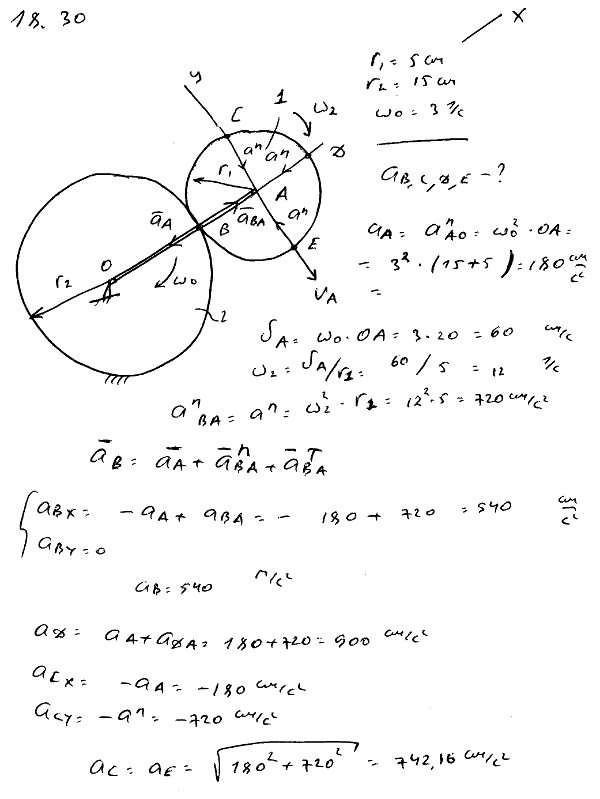 18.30
x
r₁ = 5 см
r₂ = 15 см
ω₀ = 3 1/с
a B, C, D, E - ?
y
C
1
ω₂
D
aⁿ
aⁿ
r₁
A
ā_A
B
ā_BA
aⁿ
E
O
r₂
ω₀
V_A
2
a_A = aⁿ_AO = ω₀² · OA =
= 3² · (15+5) = 180 см/с²
=
V_A = ω₀ · OA = 3 · 20 = 60 см/с
ω₂ = V_A/r₁ = 60 / 5 = 12 1/с
aⁿ_BA = aⁿ = ω₂² · r₁ = 12² · 5 = 720 см/с²
ā_B = ā_A + āⁿ_BA + ā^τ_BA
a_Bx = - a_A + a_BA = - 180 + 720 = 540 см/с²
a_By = 0
a_B = 540 м/с²
a_D = a_A + a_DA = 180 + 720 = 900 см/с²
a_Cx = - a_A = -180 см/с²
a_Cy = - aⁿ = -720 см/с²
a_C = a_E = √(180² + 720²) = 742,16 см/с²